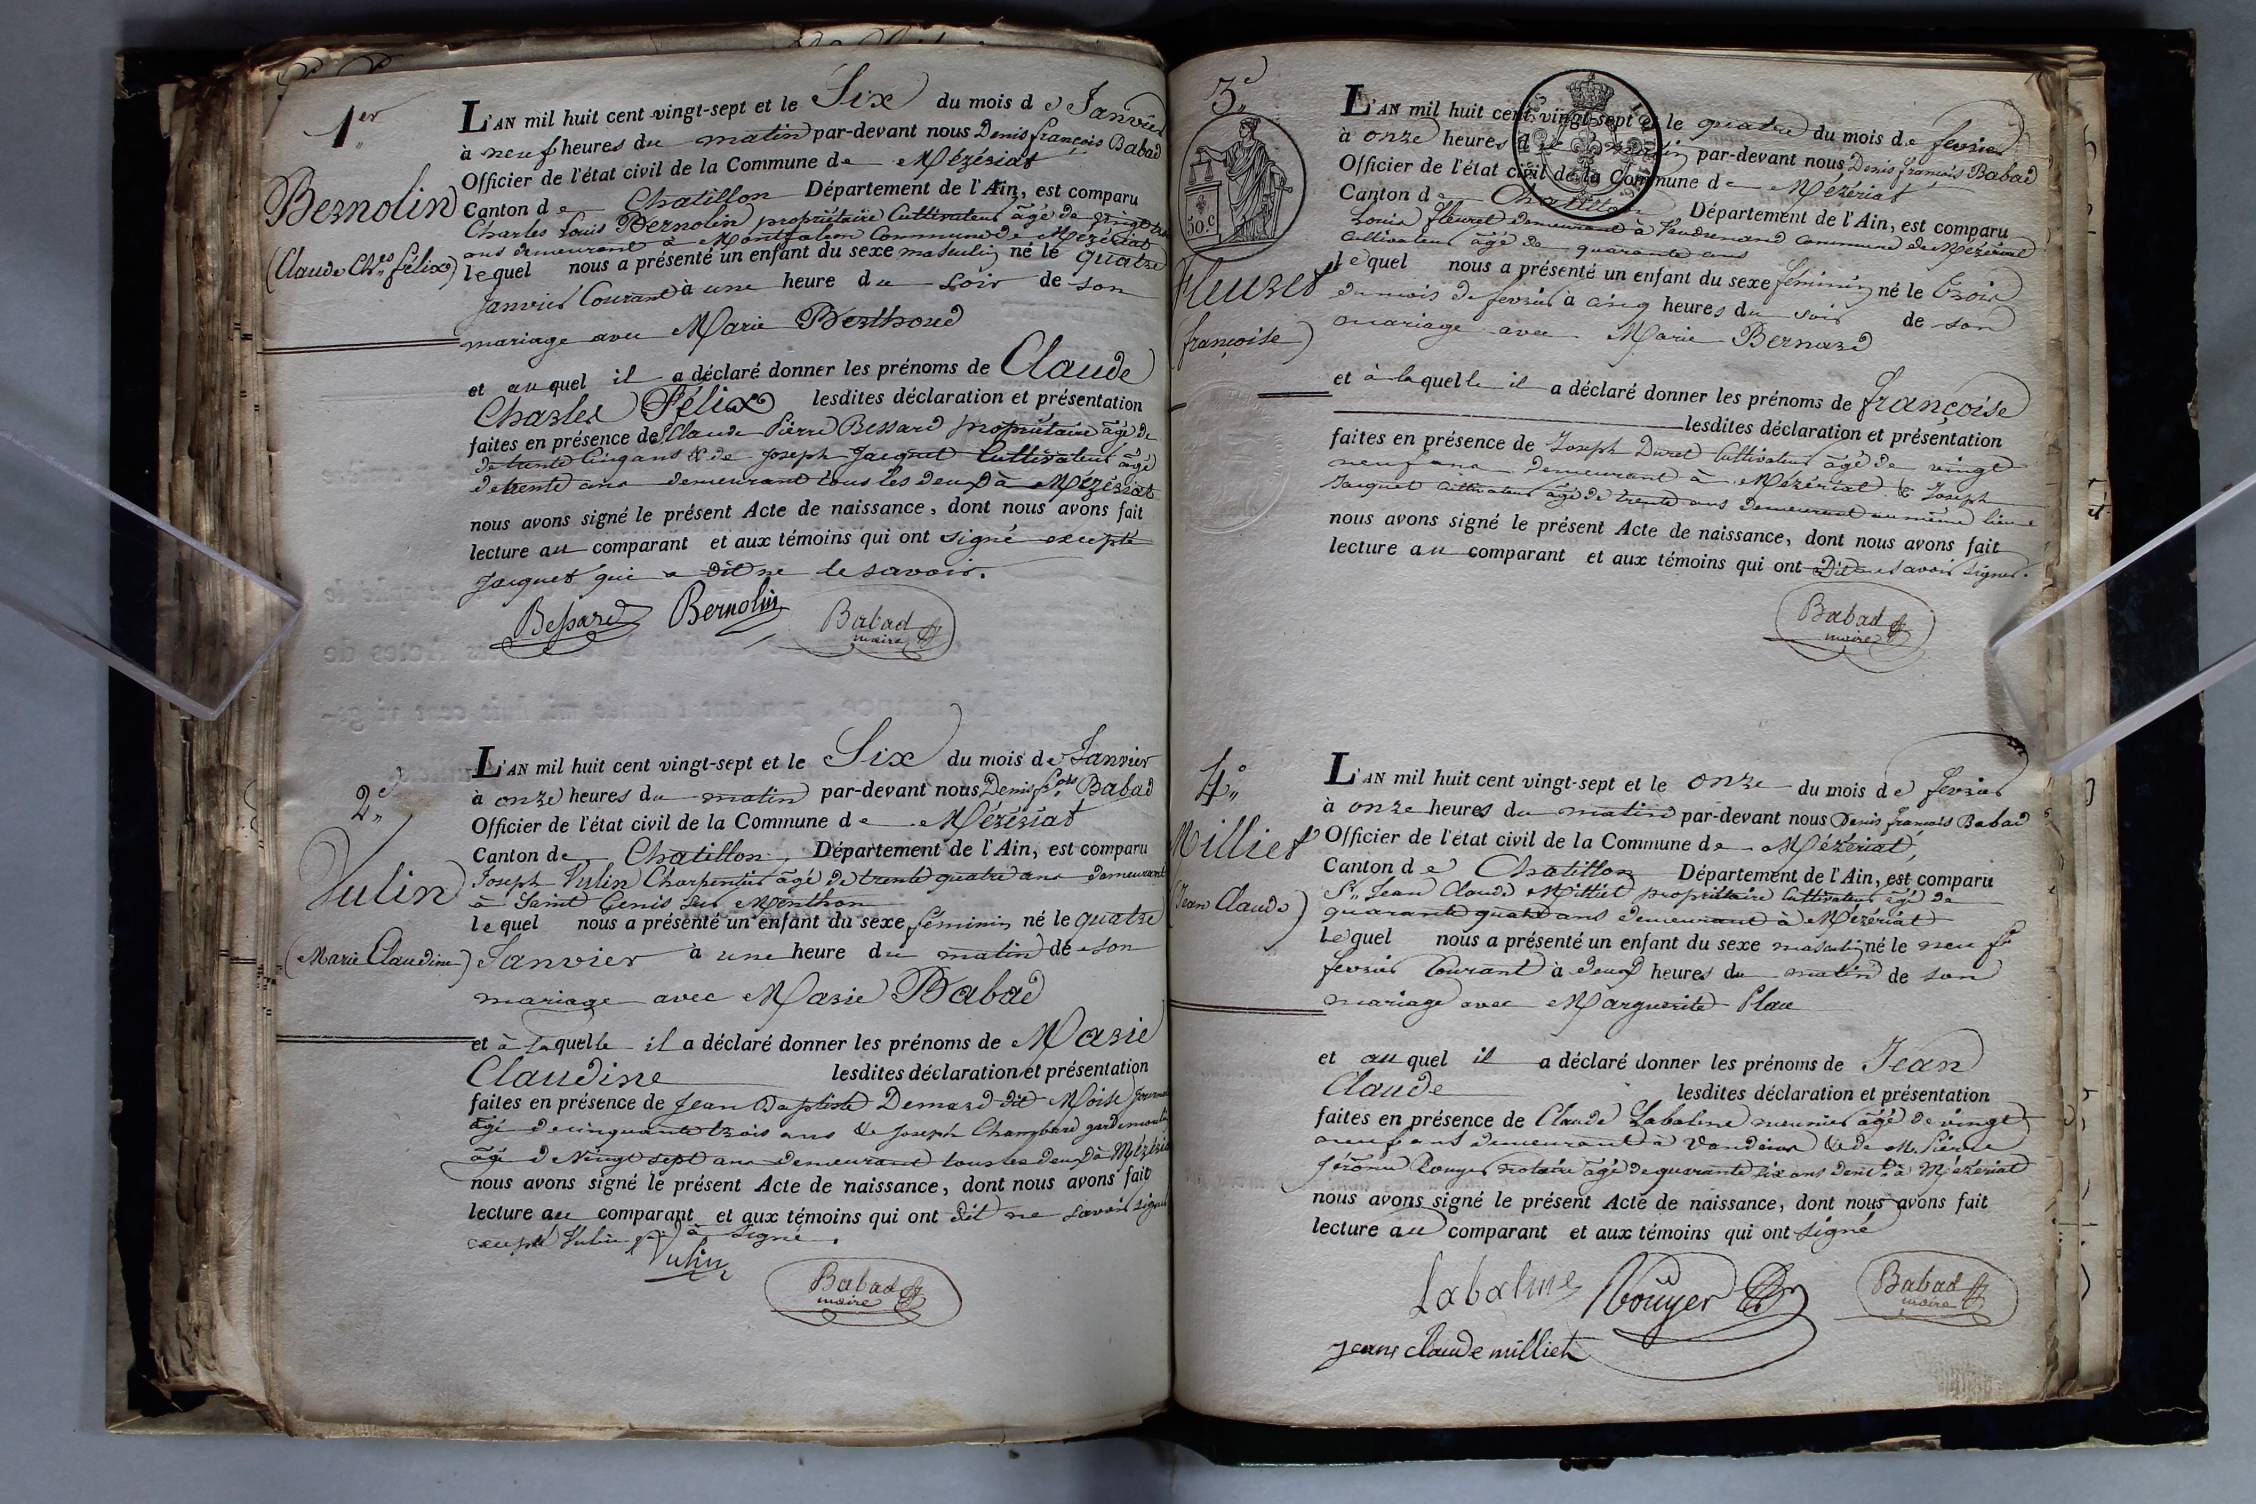 1.er
Bernolin
(Claude Ch.es félix)
L'AN mil huit cent vingt-sept et le Six du mois de Janvier
à neuf heures du matin par-devant nous Denis françois Babad
Officier de l'état civil de la Commune de Mézériat
Canton de Chatillon Département de l'Ain, est comparu
Charles Louis Bernolin propriétaire Cultivateur âgé de
ans demeurant à Montfalcon Commune de Mézériat
lequel nous a présenté un enfant du sexe masculin né le quatre
Janvier Courant à une heure du soir de son
mariage avec Marie Berthoud
et auquel il a déclaré donner les prénoms de Claude
Charles Félix lesdites déclaration et présentation
faites en présence de Claude Pierre Bessard propriétaire âgé de
de trente Cinq ans & de Joseph Jacquet Cultivateur âgé
de trente ans demeurant tous les deux à Mézériat
nous avons signé le présent Acte de naissance, dont nous avons fait
lecture au comparant et aux témoins qui ont signé excepté
Jacquet qui a dit ne le savoir.
Bessard Bernolin Babad
maire
2.e
Vulin
(Marie Claudine)
L'AN mil huit cent vingt-sept et le Six du mois de Janvier
à onze heures du matin par-devant nous Denis f.ois Babad
Officier de l'état civil de la Commune de Mézériat
Canton de Chatillon, Département de l'Ain, est comparu
Joseph Vulin Charpentier âgé de trente quatre ans demeurant
à Saint Genis sur Menthon
lequel nous a présenté un enfant du sexe féminin né le quatre
Janvier à une heure du matin de son
mariage avec Marie Babad
et à laquelle il a déclaré donner les prénoms de Marie
Claudine lesdites déclaration et présentation
faites en présence de Jean Baptiste Demard dit Moise
âgé de cinquante trois ans & Joseph Chambard garde moulin
âgé de Vingt sept ans demeurant tous les deux à Mézériat
nous avons signé le présent Acte de naissance, dont nous avons fait
lecture au comparant et aux témoins qui ont dit ne savoir signer
excepté Vulin qui a signé.
Vulin
Babad
maire
3.e
50.c
Fleuret
(françoise)
L'AN mil huit cent vingt-sept et le quatre du mois de fevrier
à onze heures du matin par-devant nous Denis françois Babad
Officier de l'état civil de la Commune de Mézériat
Canton de Chatillon Département de l'Ain, est comparu
Louis fleuret demeurant à commune de Mézériat
Cultivateur âgé de quarante ans
lequel nous a présenté un enfant du sexe féminin né le trois
du mois de fevrier à cinq heures du soir de son
mariage avec Marie Bernard
et à laquelle il a déclaré donner les prénoms de françoise
lesdites déclaration et présentation
faites en présence de Joseph Duret Cultivateur âgé de vingt
neuf ans demeurant à Mézériat & Joseph
Jacquet Cultivateur âgé de trente ans demeurant au même lieu
nous avons signé le présent Acte de naissance, dont nous avons fait
lecture au comparant et aux témoins qui ont dit ne savoir signer.
Babad
maire
4.e
Milliet
(Jean Claude)
L'AN mil huit cent vingt-sept et le onze du mois de fevrier
à onze heures du matin par-devant nous Denis françois Babad
Officier de l'état civil de la Commune de Mézériat,
Canton de Chatillon Département de l'Ain, est comparu
S.r Jean Claude Milliet propriétaire Cultivateur âgé de
quarante quatre ans demeurant à Mézériat
Lequel nous a présenté un enfant du sexe masculin né le neuf
fevrier Courant à deux heures du matin de son
mariage avec Marguerite
et auquel il a déclaré donner les prénoms de Jean
Claude lesdites déclaration et présentation
faites en présence de Claude Labalme meunier âgé de vingt
neuf ans demeurant à Vandeins & de M. Pierre
Jérome Rouyer notaire âgé de quarante six ans dem.t à Mézériat
nous avons signé le présent Acte de naissance, dont nous avons fait
lecture au comparant et aux témoins qui ont signé
Labalme Rouyer Babad
maire
jean claude milliet